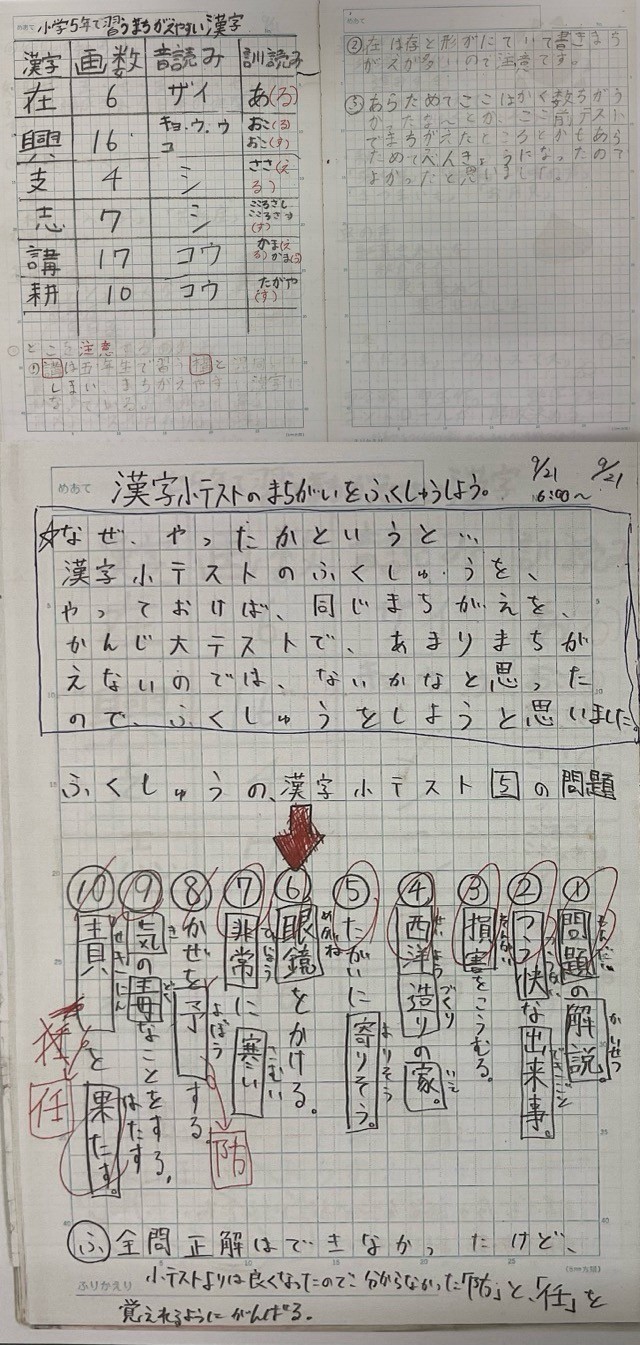 めあて 小学5年で習うまちがえやすい漢字
漢字 画数 音読み 訓読み
在 6 ザイ あ(る)
興 16 キョ.ウ.ウ コ おこ(る) おこ(す)
支 4 シ ささ(える)
志 7 シ こころざし こころざ(す)
講 17 コウ かま(える) かま(う)
耕 10 コウ たがや(す)
とこを注意
①講は五年生で習う構と
しまい、まちがえやすい
めあて
②在は存と形がにていて書きまち
がえが多いので注意です。
③あらためてここはかく数ちがう
かったな～とか、ここ前テスト
でまちがえたところとかもあら
ためてべんきょうになったので
よかったと思いました。
めあて 漢字小テストのまちがいをふくしゅうしよう。 9/21 6:00〜 9/21
☆なぜ、やったかというと…
漢字小テストのふくしゅうを、
やっておけば、同じまちがえを、
かんじ大テストで、あまりまちが
えないのでは、ないかなと思った
ので、ふくしゅうをしようと思いました。
ふくしゅうの、漢字小テスト5の問題
①問題の解説。 もんだい かいせつ
②つう快な出来事。 つうかい できごと
③損害をこうむる。 そんがい
④西洋造りの家。 せいようづくり いえ
⑤たがいに寄りそう。 よりそう
⑥眼鏡をかける。 めがね
⑦非常に寒い ひじょう さむい
⑧かぜを予する。 よぼう 防
⑨気の毒なことをする。 き どく
⑩責と果たす。 せきにん はたす 任
ふ 全問正解はできなかったけど、
ふりかえり 小テストよりは良くなったので分からなかった「防」と、「任」を
覚えれるようにがんばる。